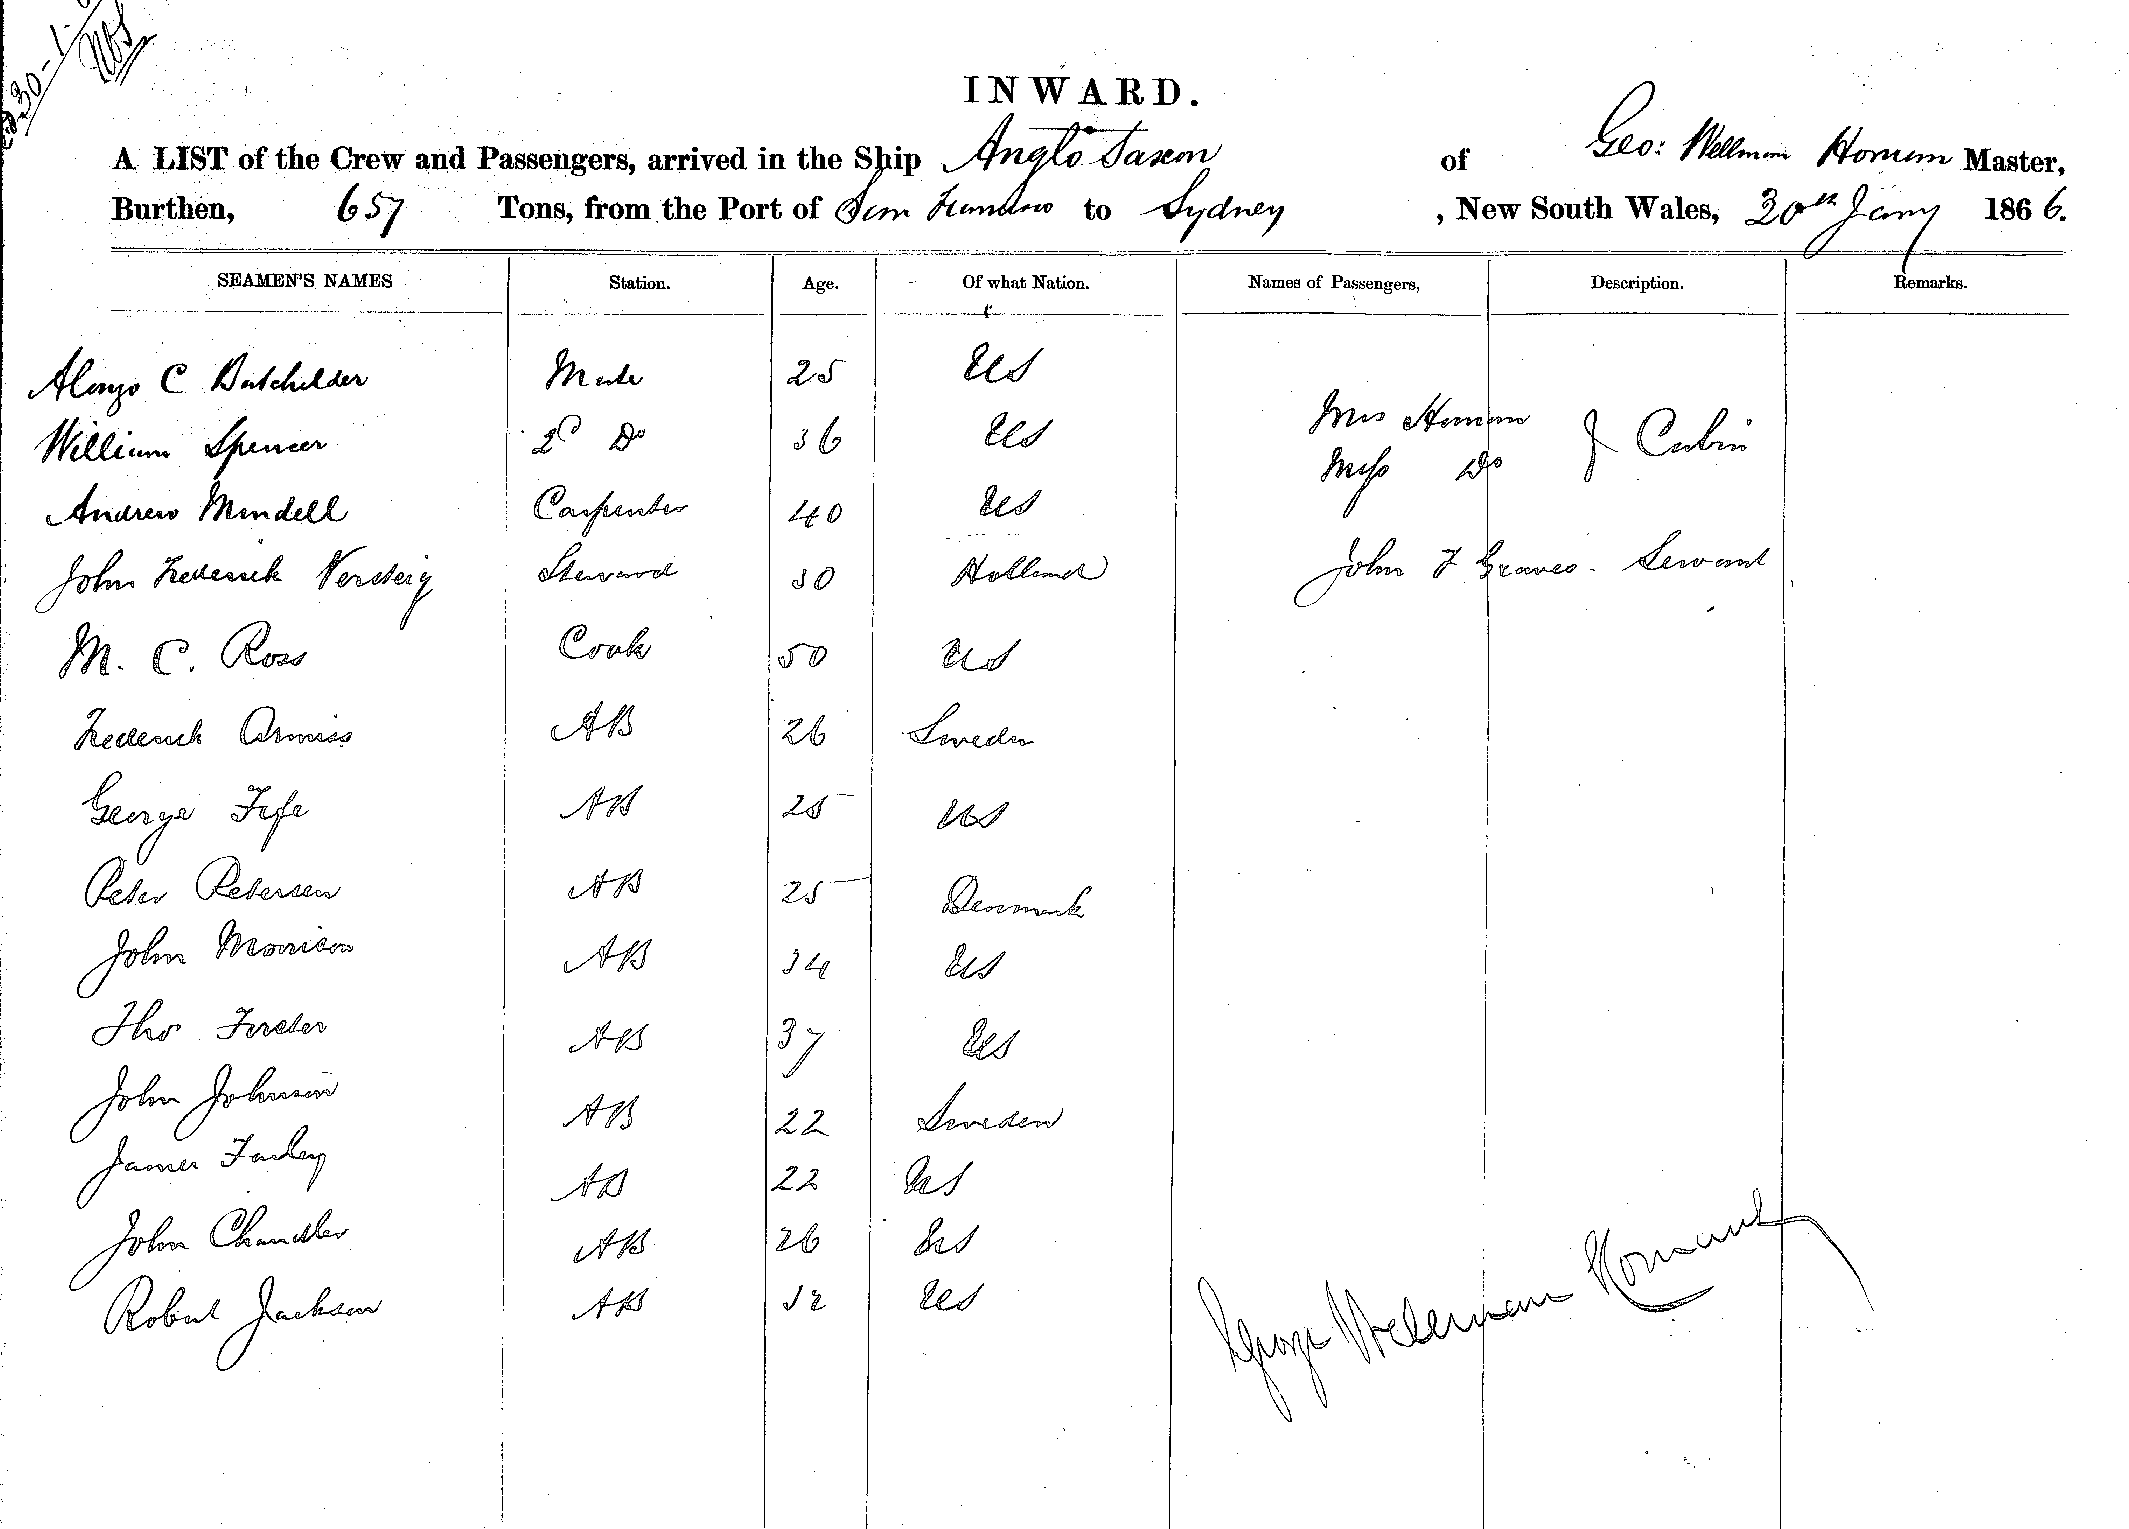 30-1-
INWARD.
A LIST of the Crew and Passengers, arrived in the Ship Anglo Saxon of Geo: Wellman Homan Master,
Burthen, 657 Tons, from the Port of San Francisco to Sydney , New South Wales, 30th Jany 1866.
SEAMEN'S NAMES Station. Age. Of what Nation. Names of Passengers, Description. Remarks.
Alonzo C Batchilder Mate 25 US
Mrs Homan
William Spencer 2d Do 36 US Cabin
Miss Do
Andrew Mendell Carpenter 40 US
John Frederick Versteig Steward 30 Holland John F Graves - Servant
M. C. Ross Cook 50 US
Frederick AB 26 Sweden
George Fife AB 25 US
Peter Petersen AB 25 Denmark
John Morrison AB 34 US
Tho Forster AB 37 US
John Johnson AB 22 Sweden
James Farley AB 22 US
John Chandler AB 26 US
Robert Jackson AB 32 US
George Wellman Homan